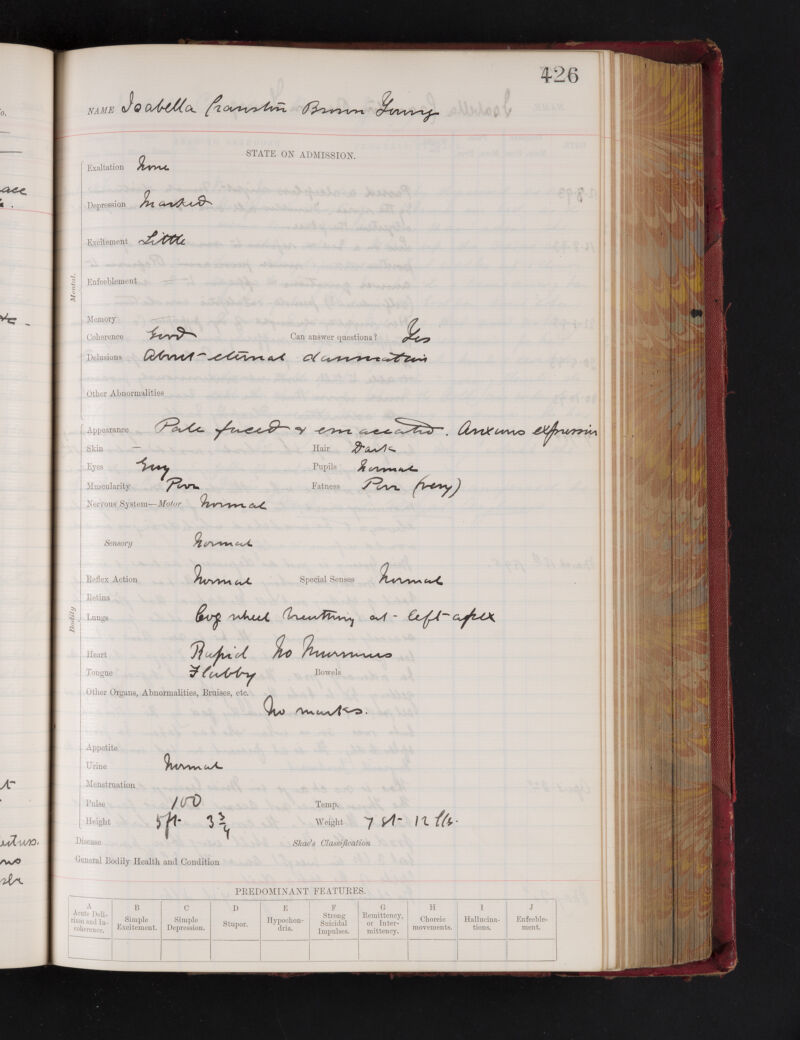 426
NAME Isabella Cranston Brown Young
STATE ON ADMISSION.
Mental.
Exaltation None
Depression Marked
Excitement Little
Enfeeblement
Memory
Coherence Good Can answer questions? Yes
Delusions About eternal damnation
Other Abnormalities
Bodily
Appearance Pale faced & emaciated. Anxious expression
Skin — Hair Dark
Eyes Grey Pupils Normal
Muscularity Poor Fatness Poor (very)
Nervous System—Motor Normal
Sensory Normal
Reflex Action Normal Special Senses Normal
Retina
Lungs Cog wheel breathing at left apex
Heart Rapid No Murmurs
Tongue Flabby Bowels
Other Organs, Abnormalities, Bruises, etc.
No marks.
Appetite
Urine Normal
Menstruation
Pulse 100 Temp.
Height 5ft 3 3/4 Weight 7 st 12 lbs.
Disease Skae's Classification
General Bodily Health and Condition
PREDOMINANT FEATURES.
A B C D E F G H I J
Acute Delirium and Incoherence. Simple Excitement. Simple Depression. Stupor. Hypochondria. Strong Suicidal Impulses. Remittency, or Intermittency. Choreic movements. Hallucinations. Enfeeblement.